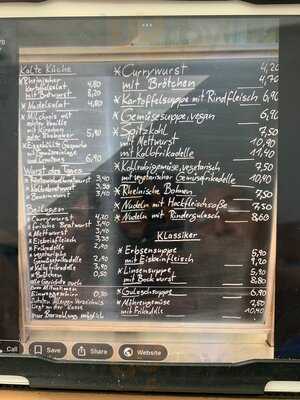 Kalte Küche
*Rheinischer
Kartoffelsalat 4,80
mit Bockwurst 8,20
*Nudelsalat 4,80
*Milchreis mit
echter Vanille
mit Kirschen
oder 5,90
*
und 6,90
Wurst des Tages
3,40
3,50
3,40
Beilagen
*Currywurst 4,20
*frische Bratwurst 3,40
*Mettwurst 3,40
*Eisbeinfleisch 3,50
*Frikadelle 2,90
*vegetarische
Gemüsefrikadelle 2,90
*Kalbsfrikadelle 3,90
*Brötchen 0,50
alle Gerichte auch
zum Mitnehmen
0,50
liegt an der Kasse
nur Barzahlung möglich
*Currywurst 4,20
mit Brötchen 4,70
*Kartoffelsuppe mit Rindfleisch 6,90
*Gemüsesuppe, vegan 6,90
*Spitzkohl 7,50
mit Mettwurst 10,90
mit Kalbsfrikadelle 11,40
*Kohlrabigemüse, vegetarisch 7,50
mit vegetarischer Gemüsefrikadelle 10,90
*Rheinische Bohnen 7,50
*Nudeln mit Hackfleischsoße 7,50
*Nudeln mit Rindergulasch 8,60
Klassiker
*Erbsensuppe 5,90
mit Eisbeinfleisch 9,20
*Linsensuppe 5,90
mit Bockwurst 8,80
*Gulaschsuppe 6,90
*Möhrengemüse 7,50
mit Frikadelle 10,40
Call
Save
Share
Website